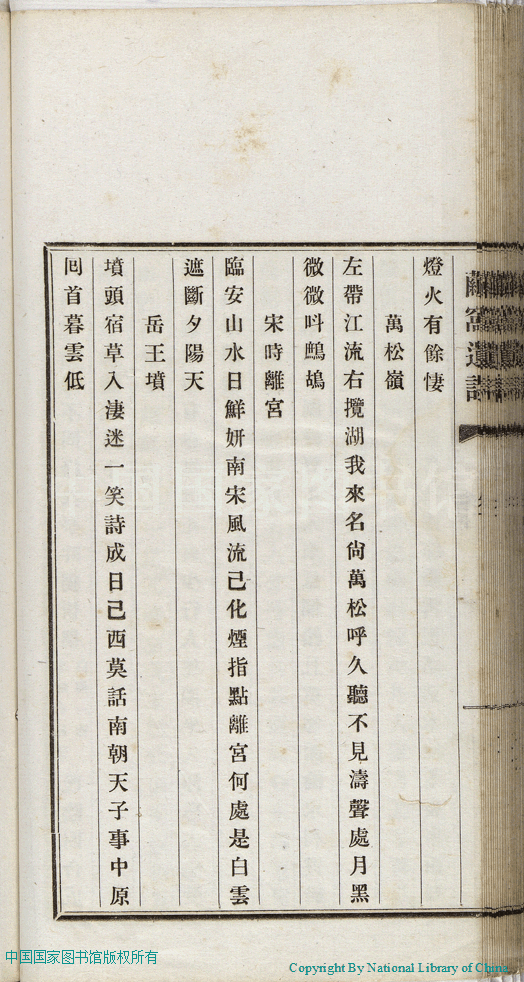 窩遺詩
燈火有餘悽
萬松嶺
左帶江流右攬湖我來名尙萬松呼久聽不見濤聲處月黑
微微呌鷓鴣
宋時離宮
臨安山水日鮮妍南宋風流已化煙指點離宮何處是白雲
遮斷夕陽天
岳王墳
墳頭宿草入淒迷一笑詩成日已西莫話南朝天子事中原
囘首暮雲低
中国国家图书馆版权所有
Copyright By National Library of China